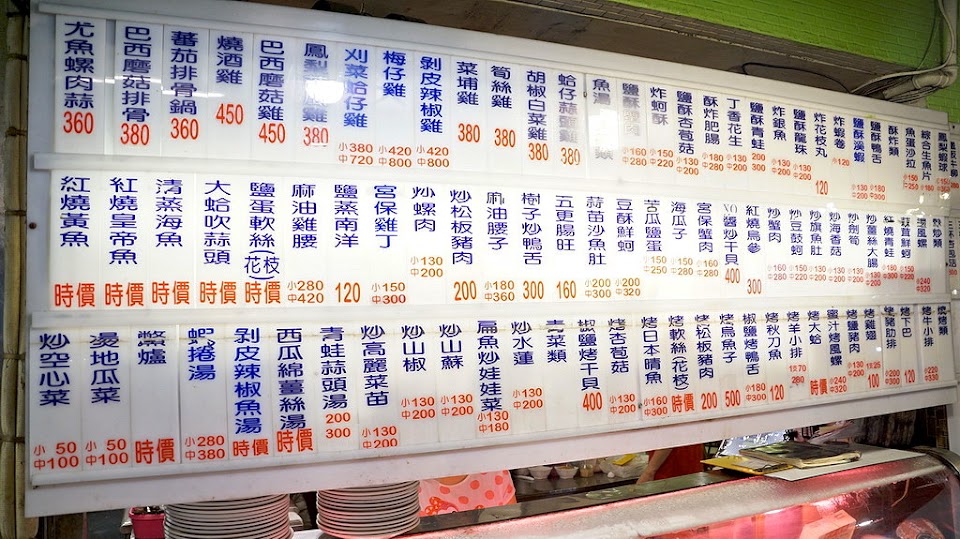 尤魚螺肉蒜 360
巴西蘑菇排骨 380
蕃茄排骨鍋 360
燒酒雞 450
巴西蘑菇雞 450
鳳梨 380
刈菜蛤仔雞 小380 中720
梅仔雞 小420 中800
剝皮辣椒雞 小420 中800
菜埔雞 380
筍絲雞 380
胡椒白菜雞 380
蛤仔蒜雞 380
魚湯
鹽酥 小160 中280
炸蚵酥 小150 中220
鹽酥杏菇 小130 中200
酥炸肥腸 小130 中280
丁香花生 小130 中200
鹽酥青蛙 200 300
炸銀魚 小130 中200
鹽酥龍珠 小130 中200
炸花枝丸 120
炸蝦卷
鹽酥溪蝦 小130 中200
鹽酥鴨舌 小180 中300
酥炸類
魚蛋沙拉 小150 中250
綜合生魚片
鳳梨蝦球
紅燒黃魚 時價
紅燒皇帝魚 時價
清蒸海魚 時價
大蛤吹蒜頭 時價
鹽蛋軟絲(花枝) 時價
麻油雞腰 小280 中420
鹽蒸南洋 120
宮保雞丁 小150 中300
炒螺肉 小130 中200
炒松板豬肉 200
麻油腰子 小180 中360
樹子炒鴨舌 300
五更腸旺 160
蒜苗沙魚肚 小200 中300
豆酥鮮蚵 小200 中320
苦瓜鹽蛋 小150 中250
海瓜子 小150 中280
宮保蟹肉 小160 中280
XO醬炒干貝 400
紅燒烏參 300
炒蟹肉 小160 中280
炒豆鼓蚵 小150 中220
炒旗魚肚 小150 中220
炒海香菇 小130 中200
炒劍筍 小130 中200
炒薑絲大腸 小130 中200
紅燒青蛙 小180 中300
蒜茸鮮蚵 小150 中200
炒風螺 小240 中320
熱炒類
炒空心菜 小50 中100
燙地瓜菜 小50 中100
鱉爐 時價
蝦捲湯 小280 中380
剝皮辣椒魚湯 時價
西瓜綿薑絲湯 時價
青蛙蒜頭湯 200 300
炒高麗菜苗 小130 中200
炒山椒 小130 中200
炒山蘇 小130 中200
扁魚炒娃娃菜 小130 中180
炒水蓮 小130 中200
青菜類
椒鹽烤干貝 400
烤杏苞菇 小130 中200
烤日本晴魚 小160 中300
烤軟絲(花枝) 時價
烤松板豬肉 200
烤烏魚子 500
椒鹽烤鴨舌 小180 中300
烤秋刀魚 120
烤羊小排 1片70 280
烤大蛤 時價
蜜汁烤風螺 小240 中320
烤鹽豬肉 小130 中200
烤雞翅 1支25 100
烤豬肋排 小200 中300
烤下巴 120
烤牛小排 小220 中330
燒烤類